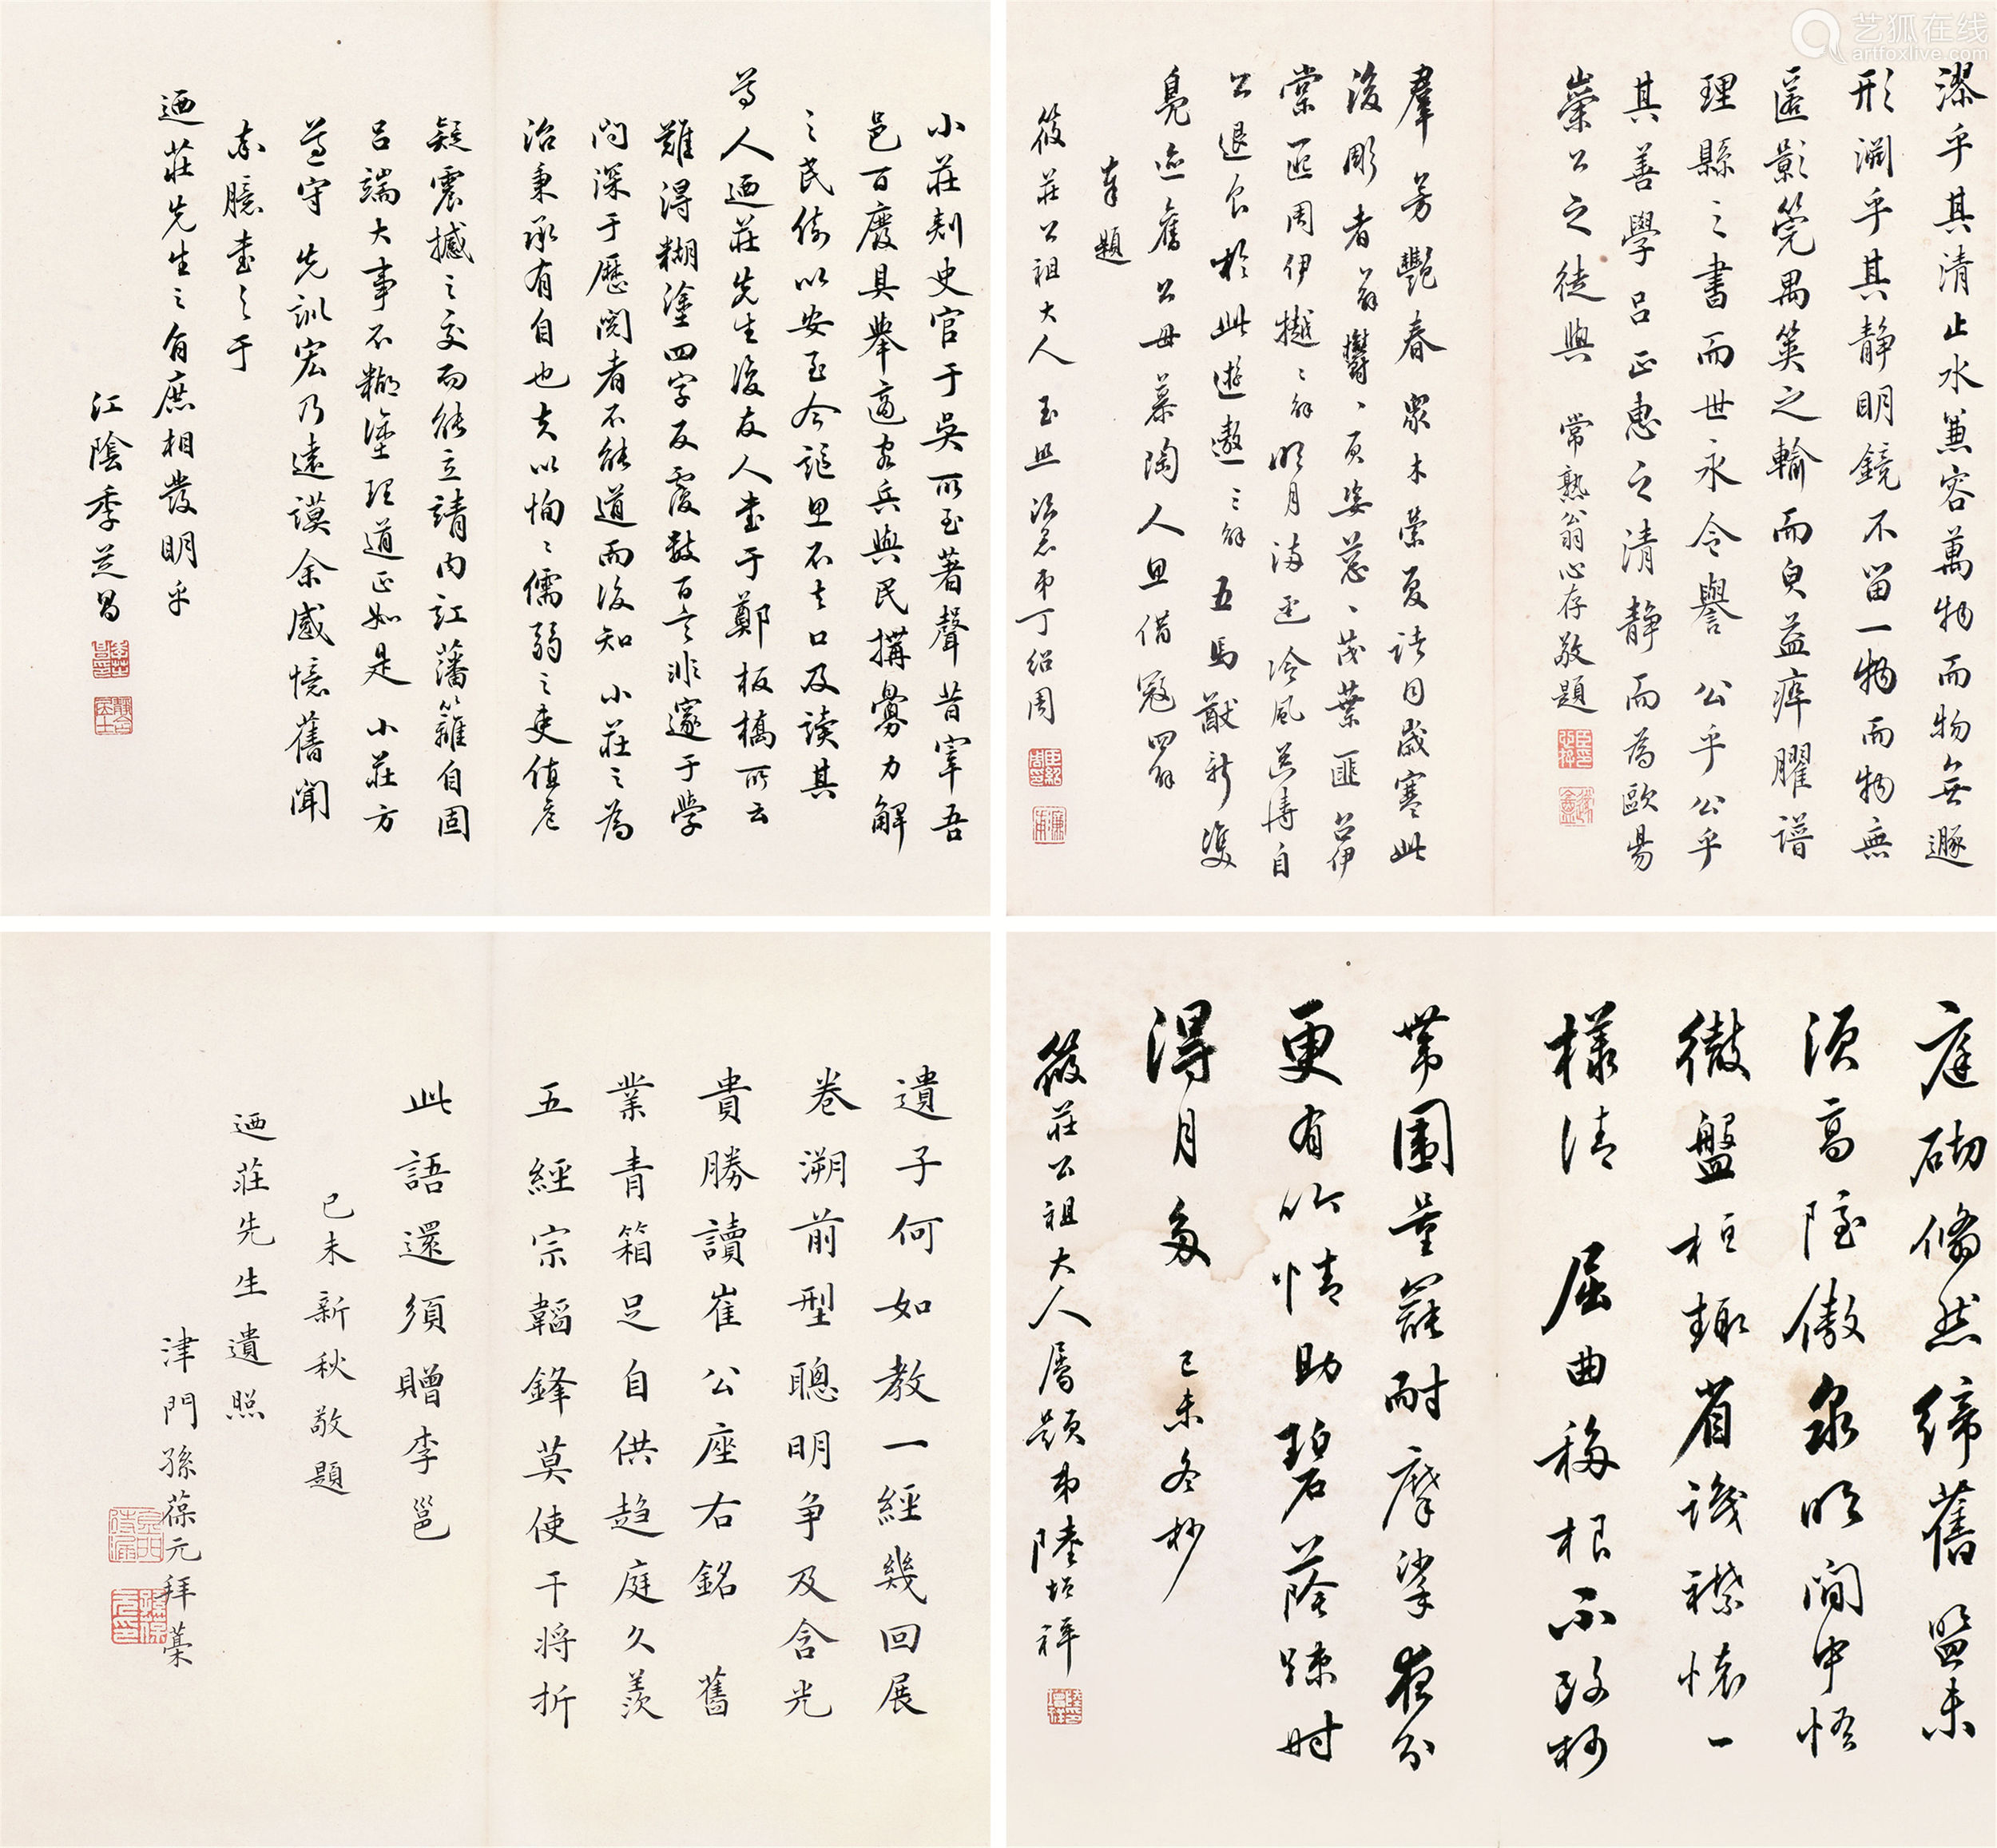 艺狐在线
artfoxlive.com
漻乎其清止水兼容萬物而物無遯
形淵乎其静明鏡不留一物而物無
匿影筦禺筴之輸而臾益瘁臞譜
理縣之書而世永令譽 公乎公乎
其善學吕正惠之清静而為歐昜
崇公之徒與 常熟翁心存敬題
羣芳艷春衆木榮夏詰月歲寒此
後彫者 一解 鬱、貞姿蕤、茂葉匪召伊
棠匪周伊樾 二解 明月滿面冷風送濤自
公退食於此遊遨 三解 五馬猷新雙
鳧迹舊公毋慕陶人且借寇 四解
筱莊公祖大人 玉照 治愚弟丁紹周
奉題
小莊刺史官于吳所至著聲昔宰吾
邑百廢具舉適客兵與民搆釁力解
之民倚以安至今謳思不去口及讀其
尊人迺莊先生後友人書于鄭板橋所云
難得糊塗四字反覆數百言非邃于學
問深于歷閲者不能道而後知 小莊之為
治秉承有自也夫以恂、儒弱之吏值危
疑震撼之交而能立靖内訌藩籬自固
吕端大事不糊塗理道正如是 小莊方
尊守 先訓宏乃遠謨余感憶舊聞
索臆書之于
迺莊先生之旨庶相發明乎
江陰季芝昌
庭砌翛然締舊盟未
須高陸傲泉明閒中悟
徹盤桓趣省識襟懷一
樣清 屈曲移根不改柯
帶圍量罷耐摩挲夜分
更有吟情助碧蔭疎時
得月多 己未冬杪
筱莊公祖大人屬題弟陸增祥
遺子何如教一經幾回展
卷溯前型聰明争及含光
貴勝讀崔公座右銘 舊
業青箱足自供趨庭久羨
五經宗韜鋒莫使干將折
此語還須贈李邕
已未新秋敬題
迺莊先生遺照
津門孫葆元拜藁